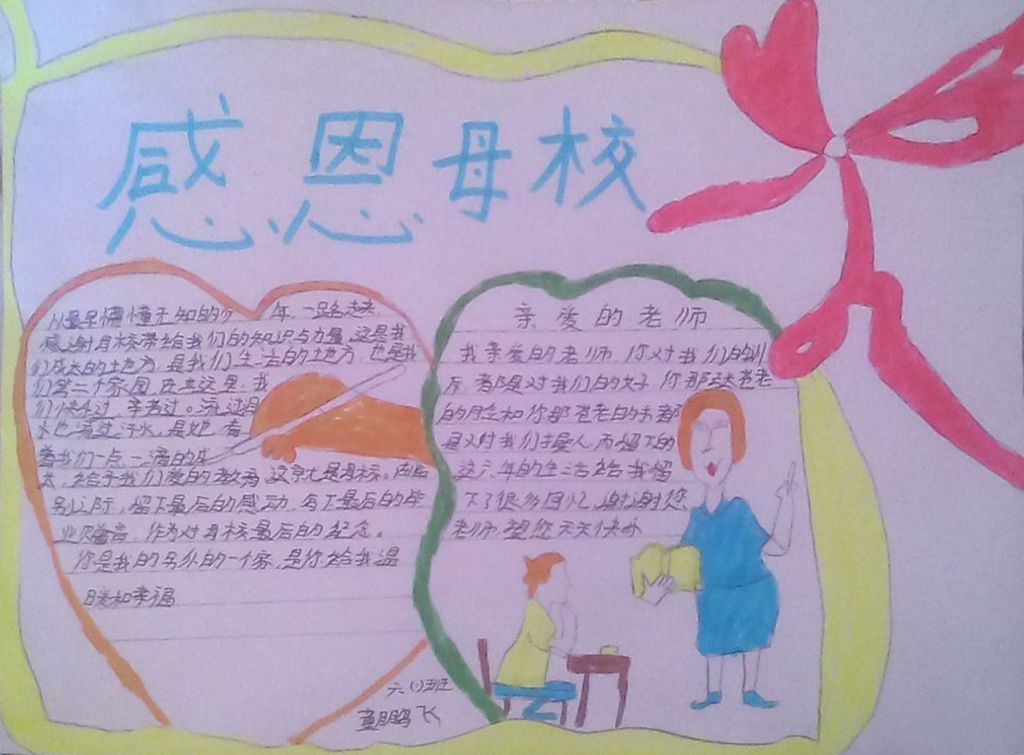 感恩母校
从最早懵懂无知的六年,一路走来
感谢母校带给我们的知识与力量,这是我
们成长的土地方,是我们生活的土地方,也是我
们第二个家园,在这里,我
们快乐过,辛苦过。流过
水也流过汗水,是她,看
着我们一点一滴的
给予我们爱的教育,这就是母校。
别之际,留下最后的感动,写下最后的毕
业赠言,作为对母校最后的纪念。
你是我的另外的一个家,是你给我温
暖和幸福
亲爱的老师
我亲爱的老师,你对我们的训
斥,都是对我们的好,你那
的和你那苍老的手都
是对我们 而留下的
这六年的生活给我留
下了很多回忆,谢谢您
老师,望您天天快乐
六(1)班
童鹏飞